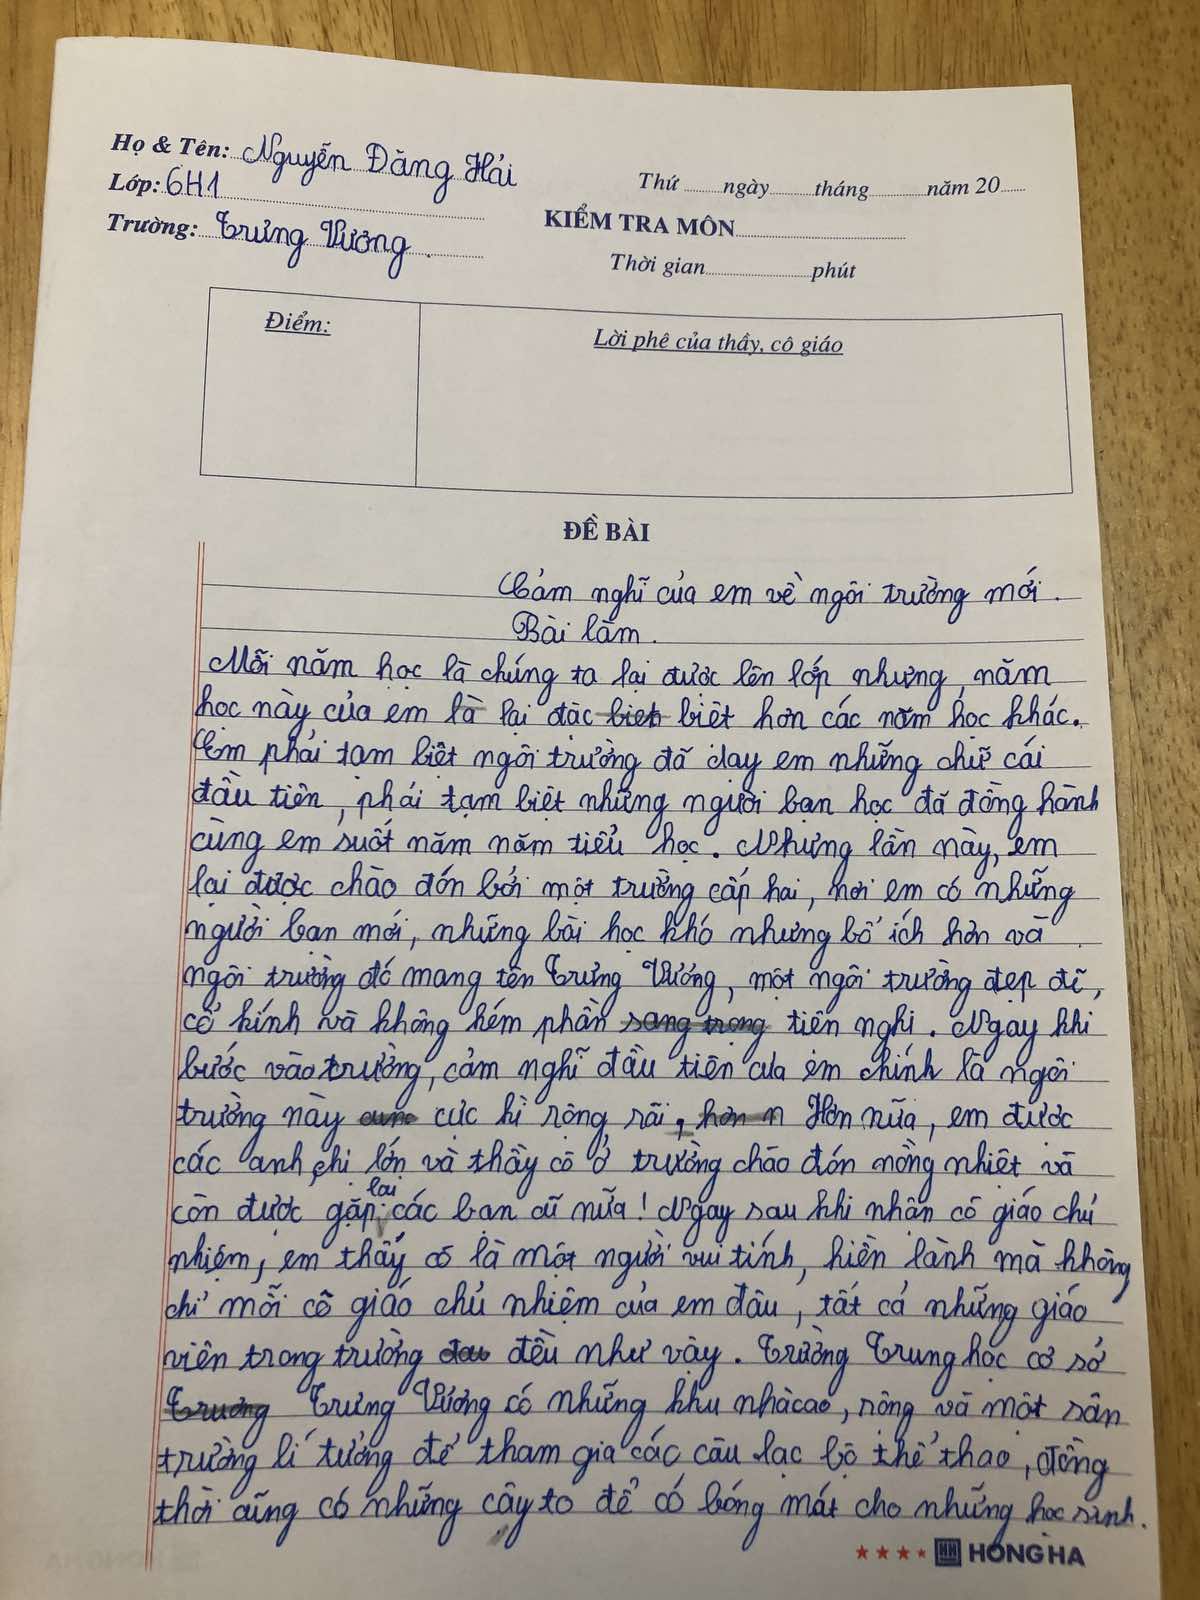 Họ & Tên: Nguyễn Đăng Hải
Lớp: 6H1
Trường: Trưng Vương.
Thứ ngày tháng năm 20
KIỂM TRA MÔN
Thời gian phút
Điểm:
Lời phê của thầy, cô giáo
ĐỀ BÀI
Cảm nghĩ của em về ngôi trường mới.
Bài làm.
Mỗi năm học là chúng ta lại được lên lớp nhưng, năm
học này của em là lại đặc biệt biệt hơn các năm học khác.
Em phải tạm biệt ngôi trường đã dạy em những chữ cái
đầu tiên, phải tạm biệt những người bạn học đã đồng hành
cùng em suốt năm năm tiểu học. Nhưng lần này, em
lại được chào đón bởi một trường cấp hai, nơi em có những
người bạn mới, những bài học khó nhưng bổ ích hơn và
ngôi trường đó mang tên Trưng Vương, một ngôi trường đẹp đẽ,
cổ kính và không kém phần sang trọng tiện nghi. Ngay khi
bước vào trường, cảm nghĩ đầu tiên của em chính là ngôi
trường này cực kì rộng rãi, hơn n Hơn nữa, em được
các anh chị lớn và thầy cô ở trường chào đón nồng nhiệt và
còn được gặp lại các bạn cũ nữa! Ngay sau khi nhận cô giáo chủ
nhiệm, em thấy cô là một người vui tính, hiền lành mà không
chỉ mỗi cô giáo chủ nhiệm của em đâu, tất cả những giáo
viên trong trường đều như vậy. Trường Trung học cơ sở
Trương Trưng Vương có những khu nhà cao, rộng và một sân
trường lí tưởng để tham gia các câu lạc bộ thể thao, đồng
thời cũng có những cây to để có bóng mát cho những học sinh.
HH HONG HA